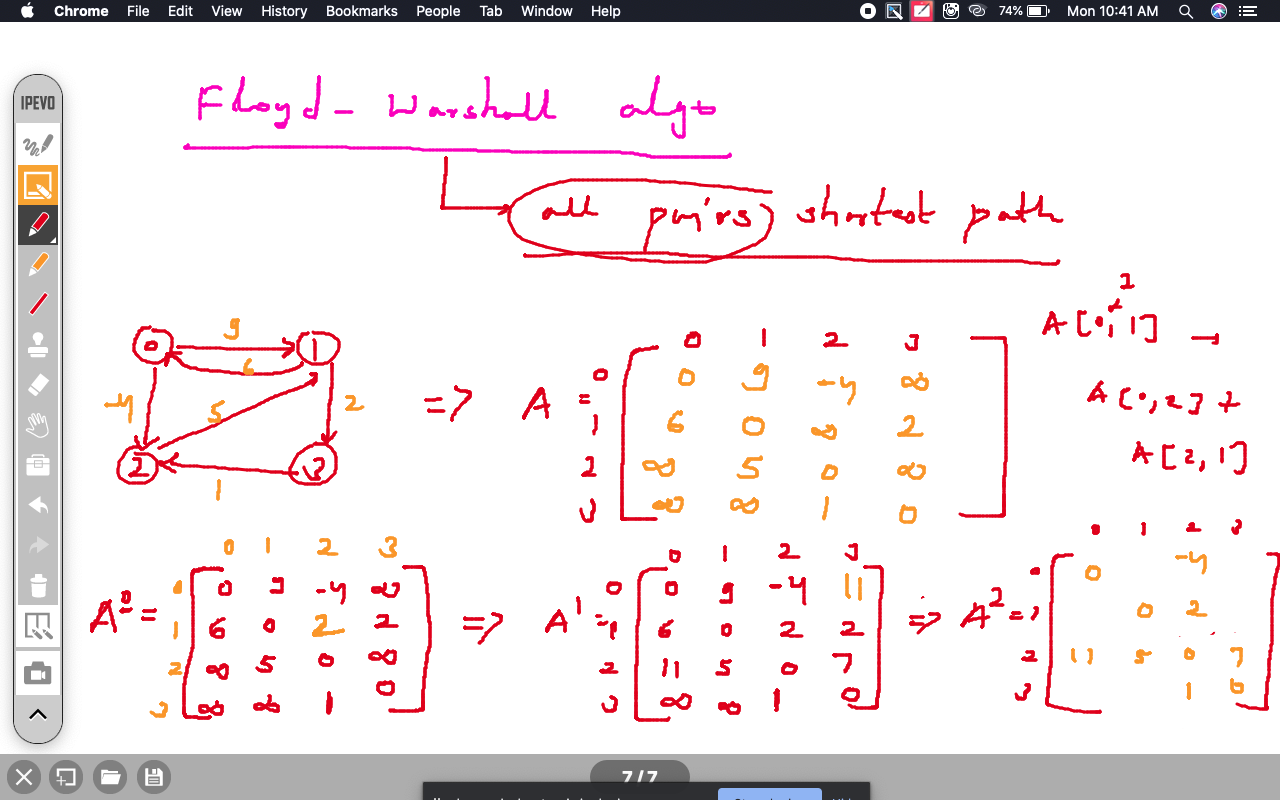 Chrome File Edit View History Bookmarks People Tab Window Help 74% Mon 10:41 AM
IPEVO
Floyd-Warshall algo
all pairs shortest path
0 9 1
6
-4 5 2
2 3
1
=> A =
0 1 2 3
0 0 9 -4 ∞
1 6 0 ∞ 2
2 ∞ 5 0 ∞
3 ∞ ∞ 1 0
2
A[0, 1] →
A[0,2] +
A[2, 1]
A⁰ =
0 1 2 3
0 0 9 -4 ∞
1 6 0 2 2
2 ∞ 5 0 ∞
3 ∞ ∞ 1 0
=> A¹ =
0 1 2 3
0 0 9 -4 11
1 6 0 2 2
2 11 5 0 7
3 ∞ ∞ 1 0
=> A² =
0 1 2 3
0 0 -4
1 0 2
2 11 5 0 7
3 1 0
7/7